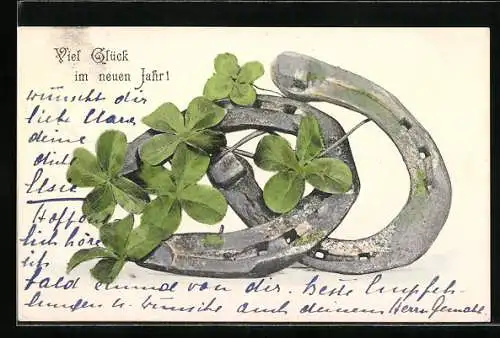 Viel Glück
im neuen Jahr!
wünscht dir
liebe Clara
deine
dich
Elsie
Hoffent
lich höre
ich
bald einmal von dir. beste Empfeh-
lungen u. wünsche auch deinem Herrn Gemahl.